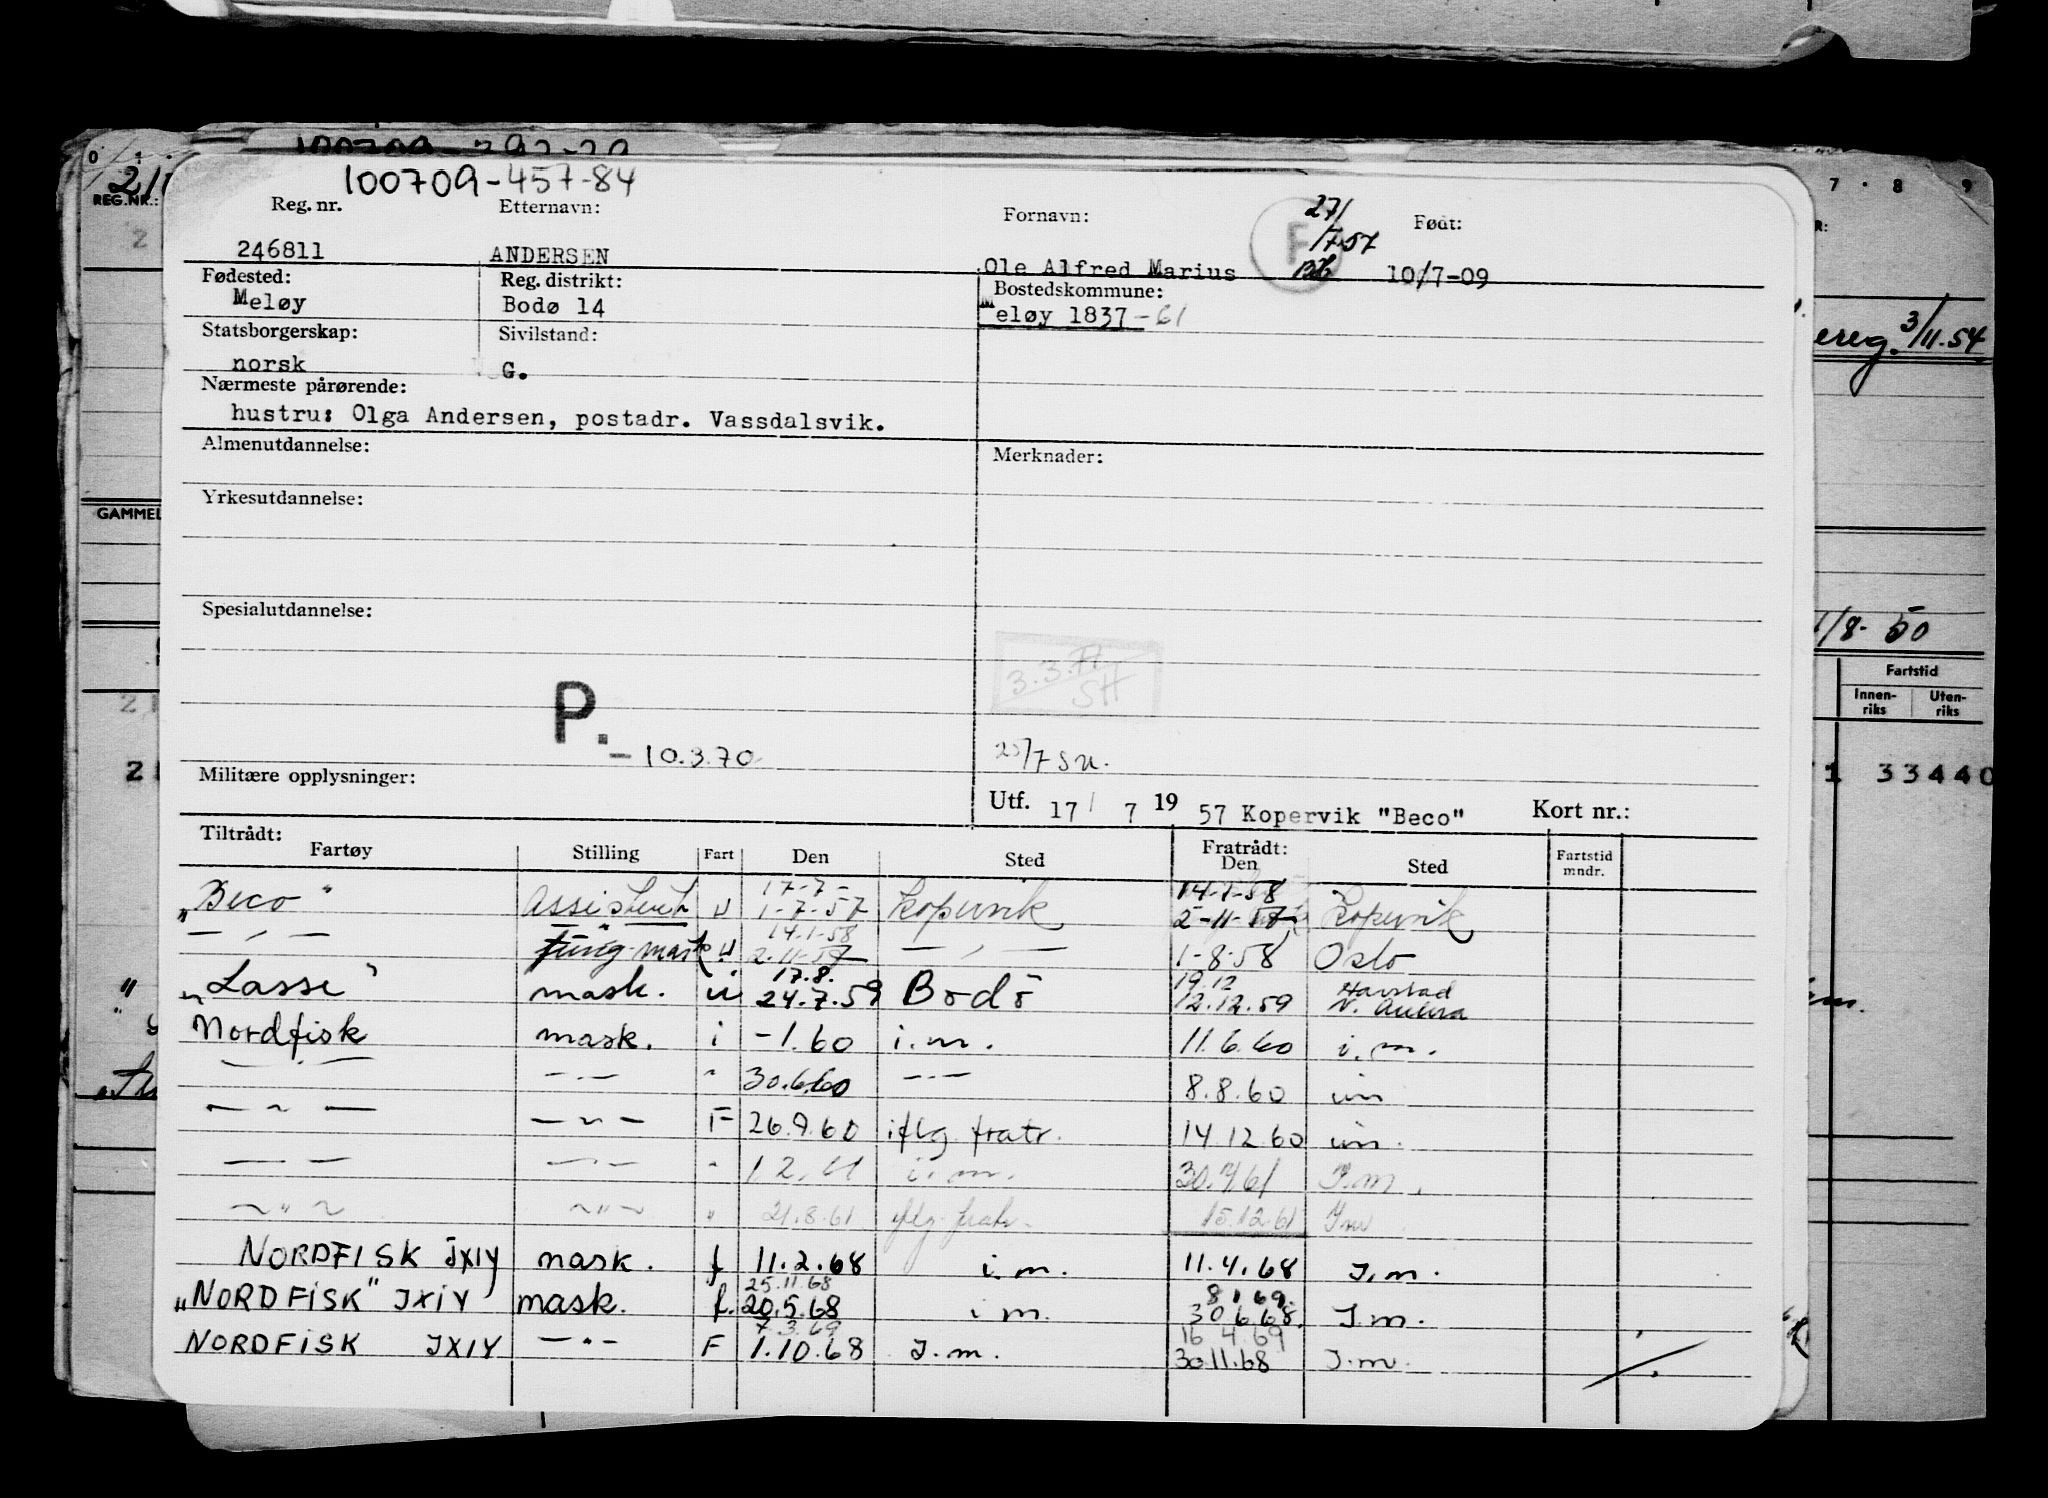 100709-457-84
Reg. nr. Etternavn: Fornavn: 27/ Født:
/7-57
246811 ANDERSEN Ole Alfred Marius F 10/7-09
Fødested: Reg. distrikt: Bostedskommune:
Meløy Bodø 14 Meløy 1837-61
Statsborgerskap: Sivilstand:
norsk G.
Nærmeste pårørende:
hustru: Olga Andersen, postadr. Vassdalsvik.
Almenutdannelse: Merknader:
Yrkesutdannelse:
Spesialutdannelse:
3.3.71
SH
P. - 10.3.70
25/7 su.
Militære opplysninger:
Utf. 17/ 7 19 57 Kopervik "Beco" Kort nr.:
Tiltrådt: Fratrådt:
Fartøy Stilling Fart Den Sted Den Sted Fartstid mndr.
17-7- 14-1-58
"Beco" Assistent u 1-7-57 Kopervik 2-11-57 Kopervik
14.1-58
— " — fung. mask. u 2.11-57 — " — 1-8-58 Oslo
17.8. 19.12 Harstad
"Lasse" mask. u 24.7.59 Bodö 12.12.59
Nordfisk mask. i -1.60 i.m. 11.6.60 i.m.
— " — — " — " 30.6.60 — " — 8.8.60 im
— " — — " — F 26.9.60 iflg. fratr. 14.12.60 im.
— — — " — " 1.2.61 i.m. 30.4.61 I.m.
— " — — " — " 21.8.61 iflg. fratr. 15.12.61 Im
NORDFISK JXIY mask. f 11.2.68 i.m. 11.4.68 I.m.
25.11.68 8.1.69.
"NORDFISK" JXIY mask. f. 20.5.68 i m. 30.6.68. I.m.
7.3.69 16.4.69
NORDFISK JXIY — " — F 1.10.68 I.m. 30.11.68 I.m.
REG.NR.:
GAMMEL
7 8 9
3/11.54
/8-50
Fartstid
Innenriks Utenriks
33440